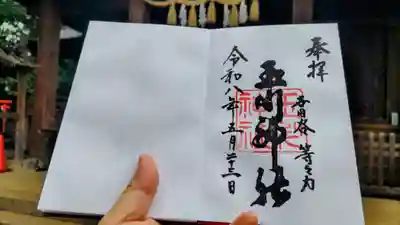 奉拝
世田谷 等々力
玉川神社
令和八年五月二十三日